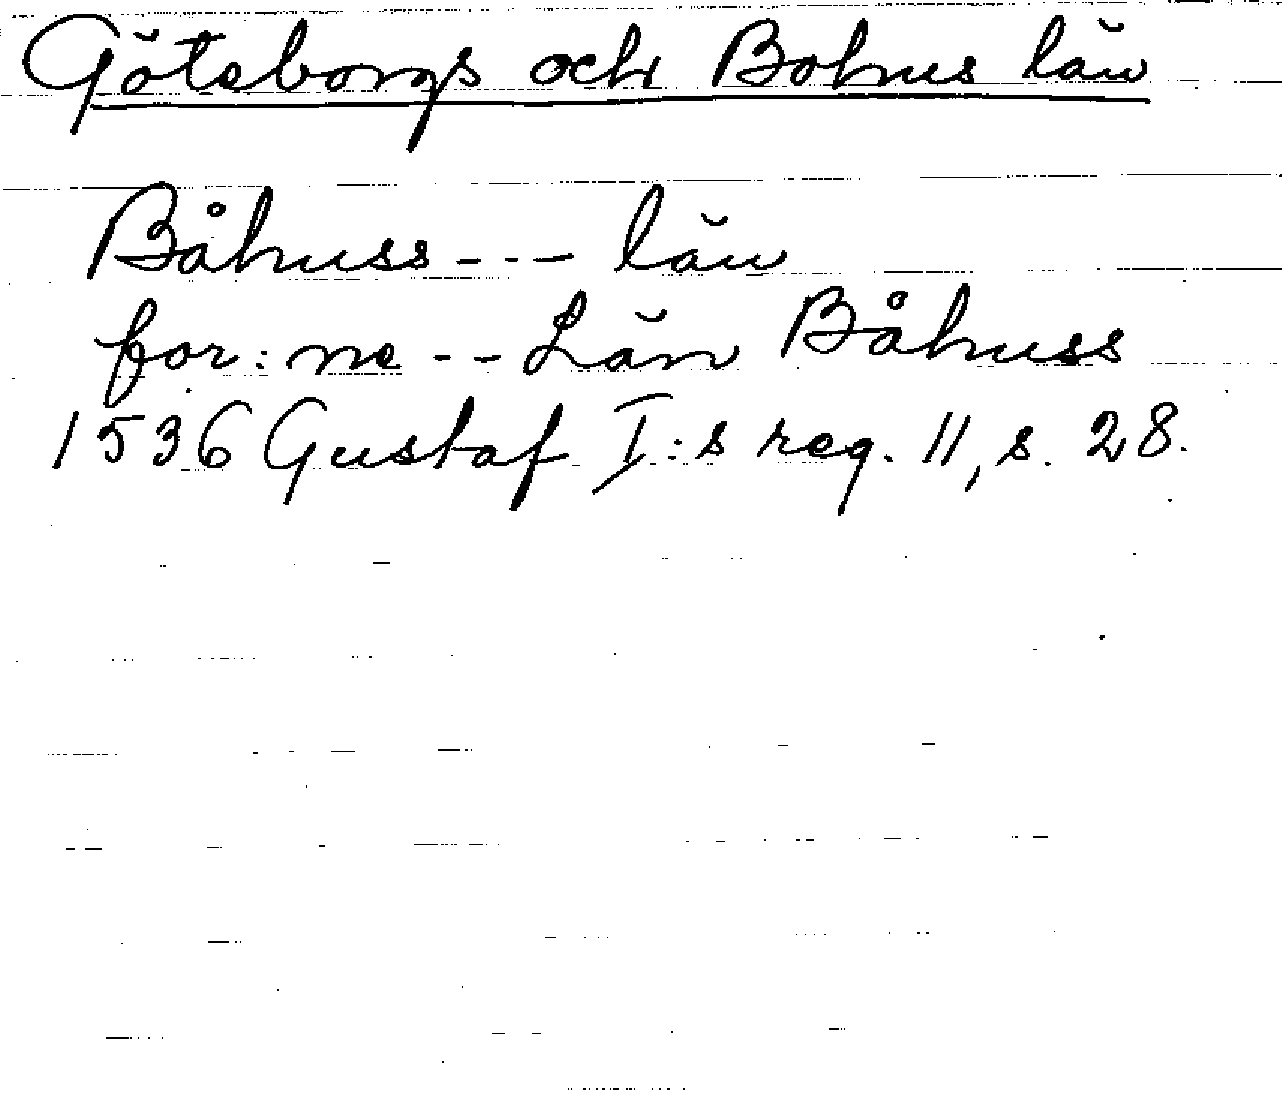 Göteborgs och Bohus län
Båhuss --- län
for: ne -- Län Båhuss
1536 Gustaf I:s reg. 11, s. 28.